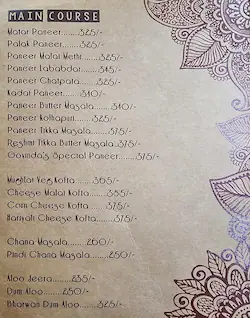 MAIN COURSE
Matar Paneer........325/-
Palak Paneer.......325/-
Paneer Matar Methi......325/-
Paneer Lababdar......345/-
Paneer Chatpata......325/-
Kadai Paneer......340/-
Paneer Butter Masala.......340/-
Paneer Kolhapuri.......325/-
Paneer Tikka Masala.......375/-
Reshmi Tikka Butter Masala.375/-
Govinda's Special Paneer.......375/-
Mughlai Veg Kofta.......365/-
Cheese Malai Kofta.......385/-
Corn Cheese Kofta......375/-
Hariyali Cheese Kofta......375/-
Chana Masala....... 260/-
Pindi Chana Masala.......250/-
Aloo Jeera.......235/-
Dum Aloo......250/-
Bharwan Dum Aloo......325/-